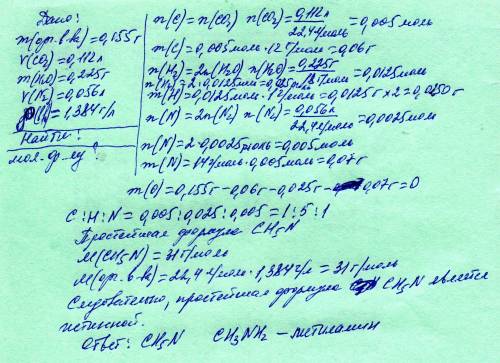 Дано:
m(орг.в-ва)=0,155г
V(CO₂)=0,112л
m(H₂O)=0,225г
V(N₂)=0,056л
=1,384г/л
Найти:
мол.ф-лу?
n(C)=n(CO₂) n(CO₂)=0,112л/22,4л/моль=0,005моль
m(C)=0,005моль·12г/моль=0,06г
n(H₂)=2n(H₂O) n(H₂O)=0,225г/18г/моль=0,0125моль
n(H)=2·0,0125моль=0,025моль
m(H)=0,0125моль·1г/моль=0,0125г×2=0,0250г
n(N)=2n(N₂) n(N₂)=0,056л/22,4л/моль=0,0025моль
n(N)=2·0,0025моль=0,005моль
m(N)=14г/моль·0,005моль=0,07г
m(O)=0,155г-0,06г-0,025г-0,07г=0
C:H:N=0,005:0,025:0,005=1:5:1
Простейшая формула CH₅N
M(CH₅N)=31г/моль
M(орг.в-ва)=22,4л/моль·1,384г/л=31г/моль
Следовательно, простейшая формула CH₅N является
истинной.
Ответ: CH₅N CH₃NH₂ – метиламин